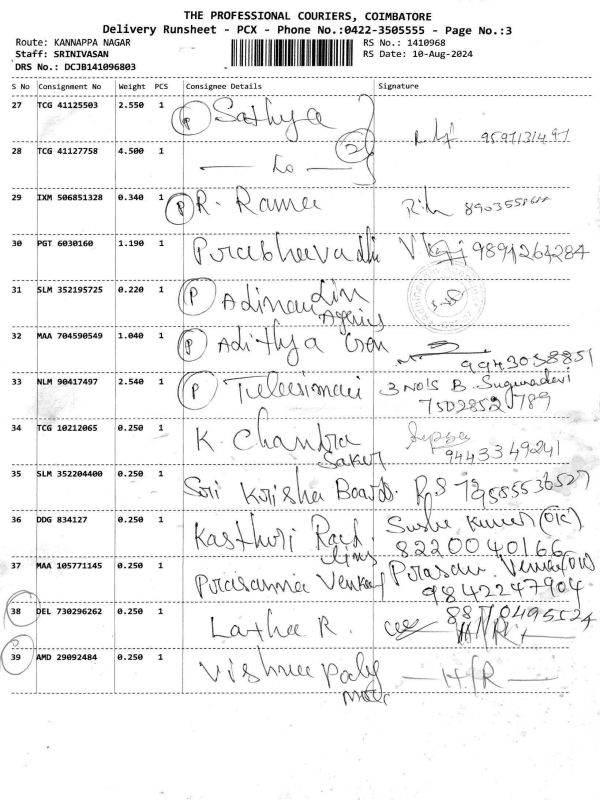 THE PROFESSIONAL COURIERS, COIMBATORE
Delivery Runsheet - PCX - Phone No.:0422-3505555 - Page No.:3
Route: KANNAPPA NAGAR
RS No.: 1410968
Staff: SRINIVASAN
RS Date: 10-Aug-2024
DRS No.: DCJB141096803
S No Consignment No Weight PCS Consignee Details Signature
27 TCG 41125503 2.550 1 P Sathya
9597131497
28 TCG 41127758 4.500 1 2
29 IXM 506851328 0.340 1 P R. Ramea
30 PGT 6030160 1.190 1 Pirabhavadhi 9894264284
31 SLM 352195725 0.220 1 P Adinau Lin
Agenies
32 MAA 704590549 1.040 1 P Adithya
9943058851
33 NLM 90417497 2.540 1 P Tulasimani 3 No's B. Sugunadevi
7502852789
34 TCG 10212065 0.250 1 K. Chandra
Saker
9443349241
35 SLM 352204400 0.250 1 Sri Krisha Board. R.S 9585536527
36 DDG 834127 0.250 1 Kasthuri Susha Kumar
8220040166
37 MAA 105771145 0.250 1 Pirasanna Venkat Pirasan
9842247904
38 DEL 730296262 0.250 1 Latha R.
39 AMD 29092484 0.250 1 Vishnu Poly